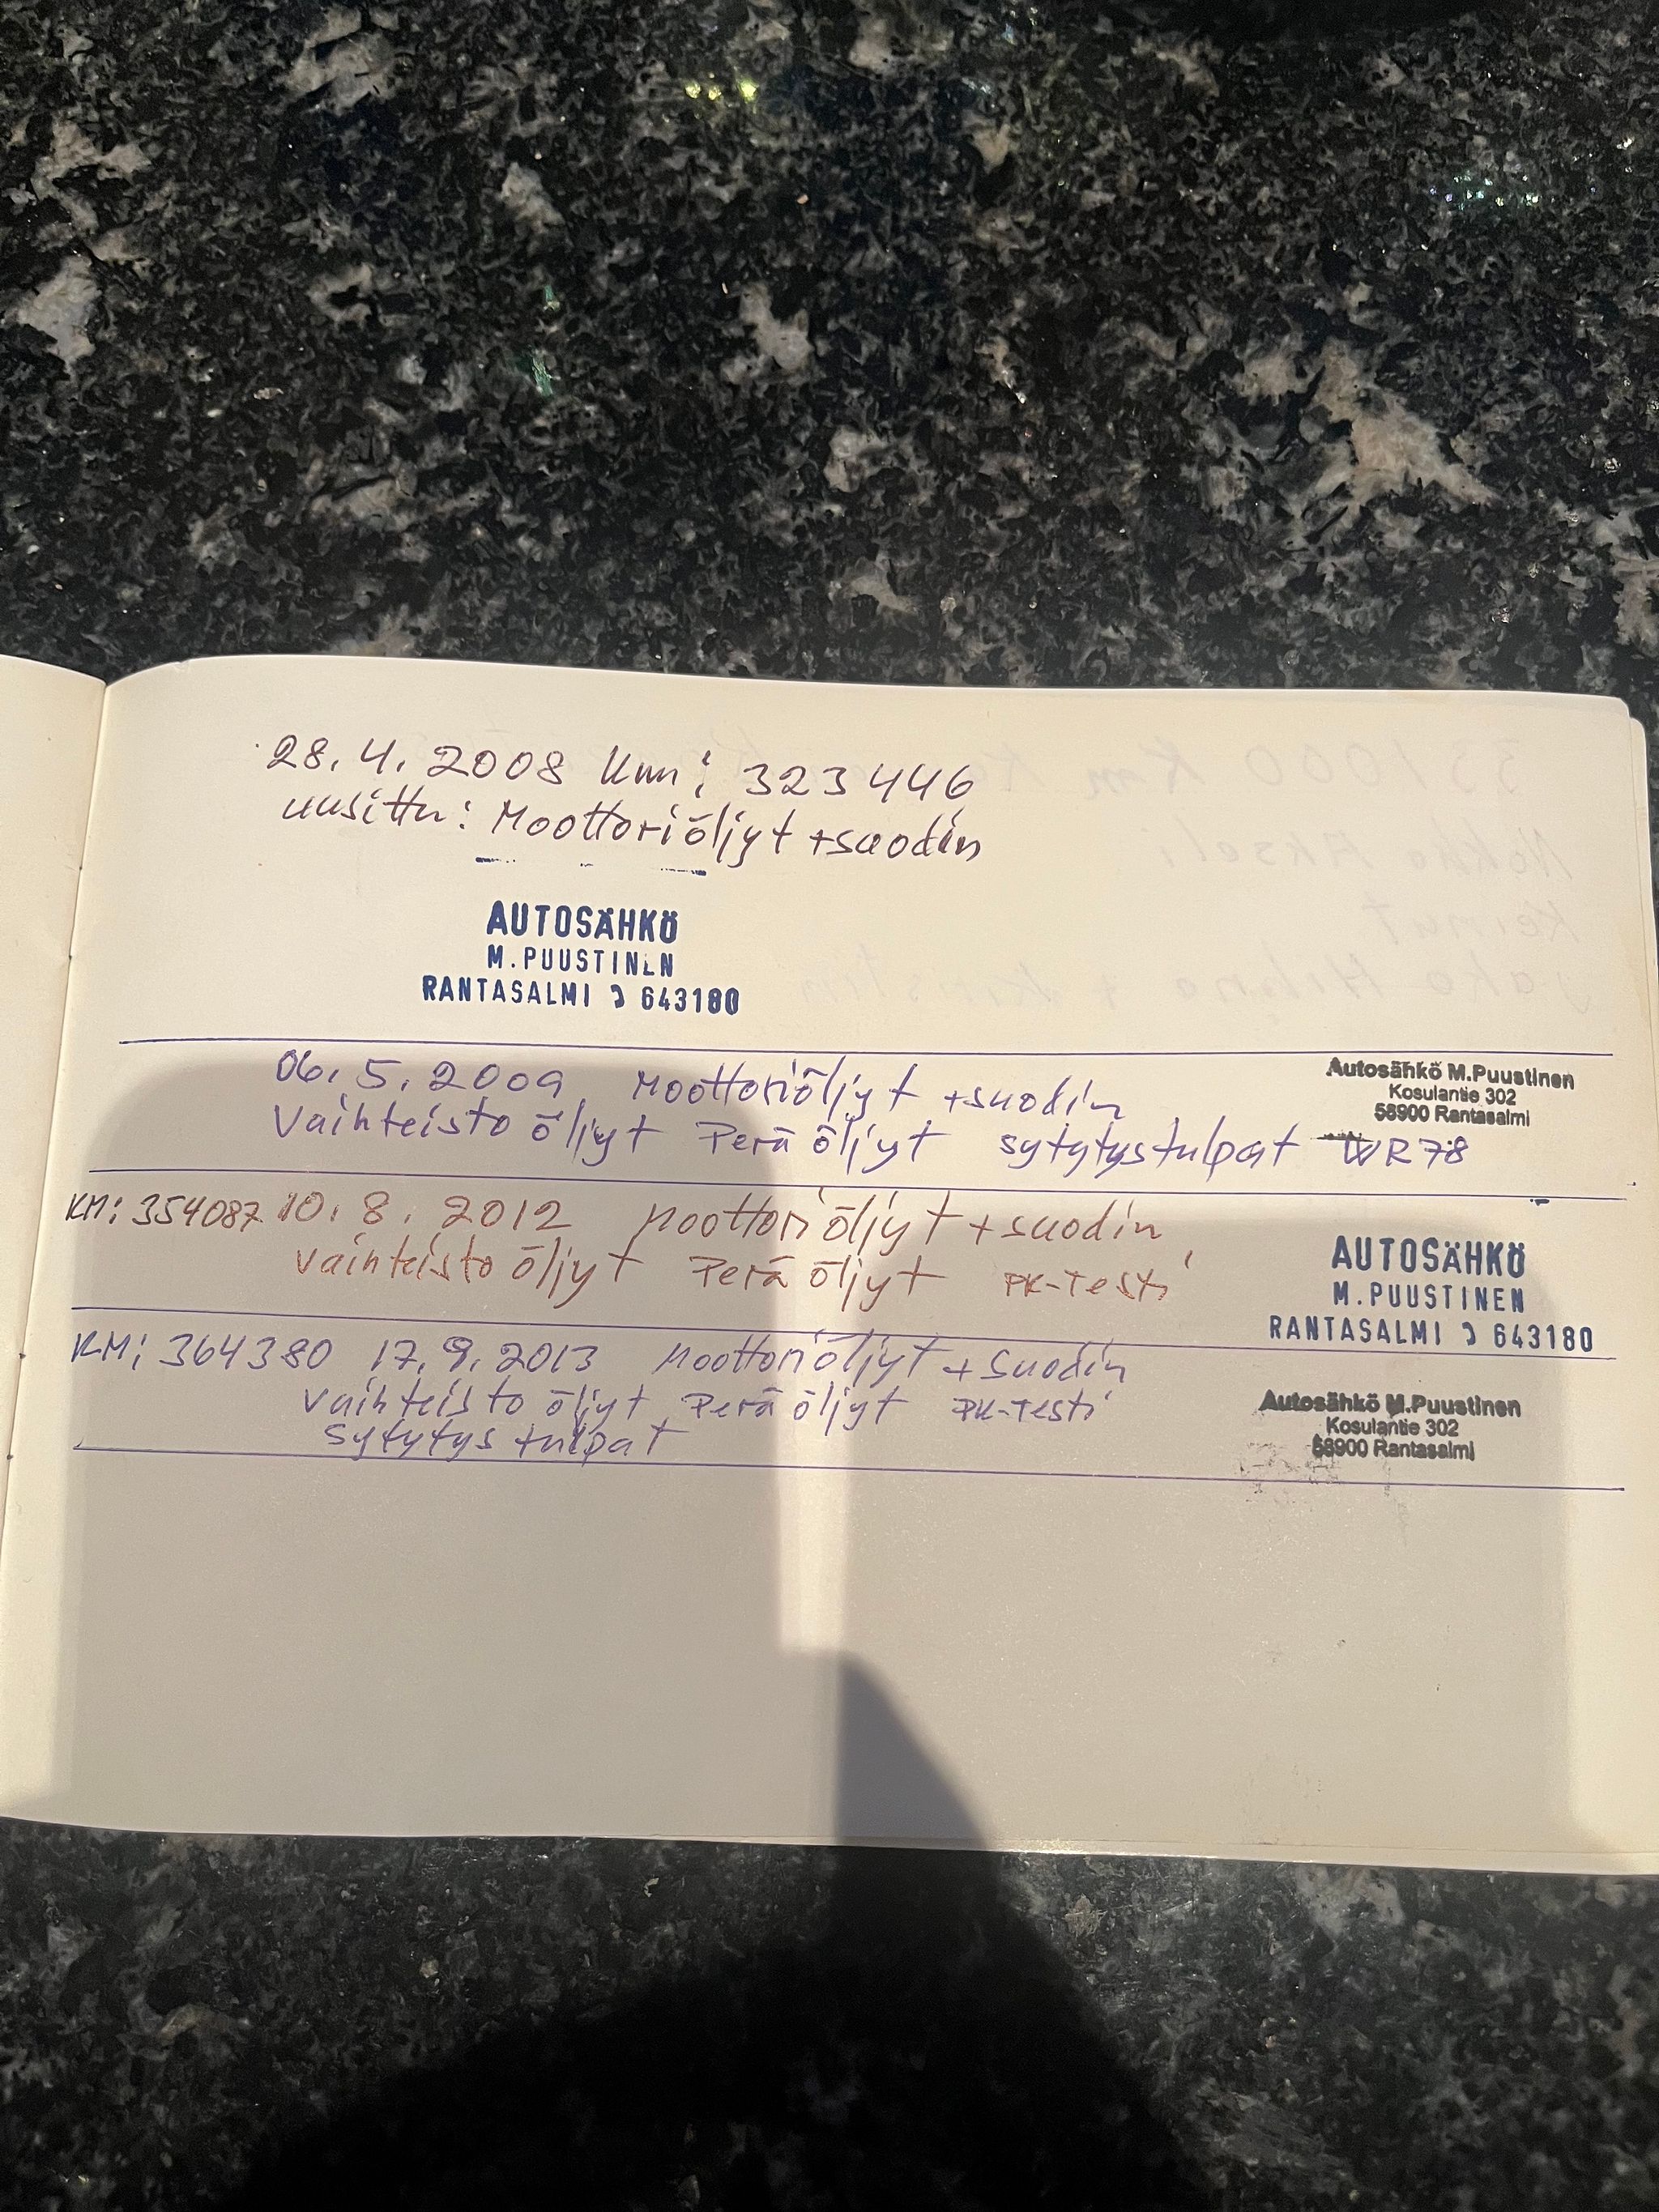 28.4.2008 Km: 323446
uusittu: Moottoriöljyt +suodin
AUTOSÄHKÖ
M.PUUSTINEN
RANTASALMI 643180
06.5.2009 Moottoriöljyt +suodin
Vaihteisto öljyt Perä öljyt sytytystulpat WR78
Autosähkö M.Puustinen
Kosulantie 302
58900 Rantasalmi
KM: 354087 10.8.2012 Moottoriöljyt +suodin
Vaihteisto öljyt Perä öljyt PK-Testi
AUTOSÄHKÖ
M.PUUSTINEN
RANTASALMI 643180
KM: 364380 17.9.2013 Moottoriöljyt +suodin
Vaihteisto öljyt Perä öljyt PK-Testi
Sytytystulpat
Autosähkö M.Puustinen
Kosulantie 302
58900 Rantasalmi